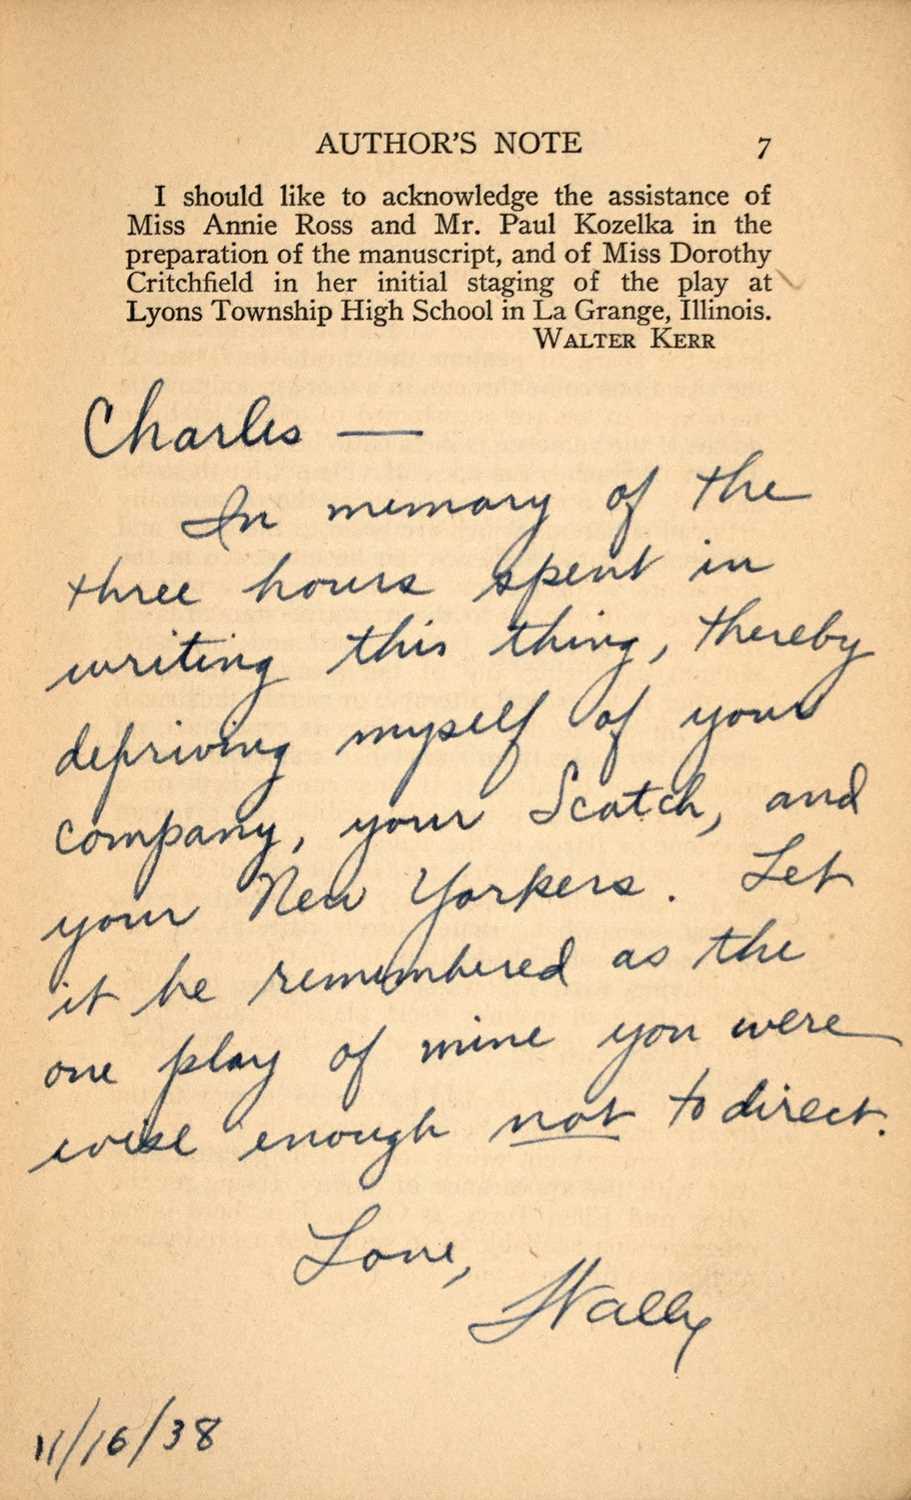 AUTHOR'S NOTE 7
I should like to acknowledge the assistance of
Miss Annie Ross and Mr. Paul Kozelka in the
preparation of the manuscript, and of Miss Dorothy
Critchfield in her initial staging of the play at
Lyons Township High School in La Grange, Illinois.
WALTER KERR
Charles —
In memory of the
three hours spent in
writing this thing, thereby
depriving myself of your
company, your Scotch, and
your New Yorkers. Let
it be remembered as the
one play of mine you were
wise enough not to direct.
Love,
Wally
11/16/38